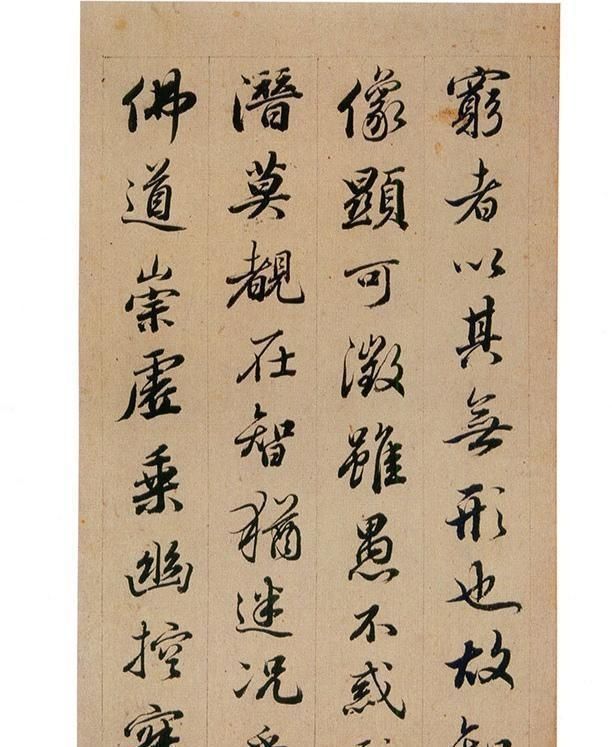 窮者以其無形也故
像顯可徵雖愚不惑
潛莫覩在智猶迷況
佛道崇虛乘幽控寂